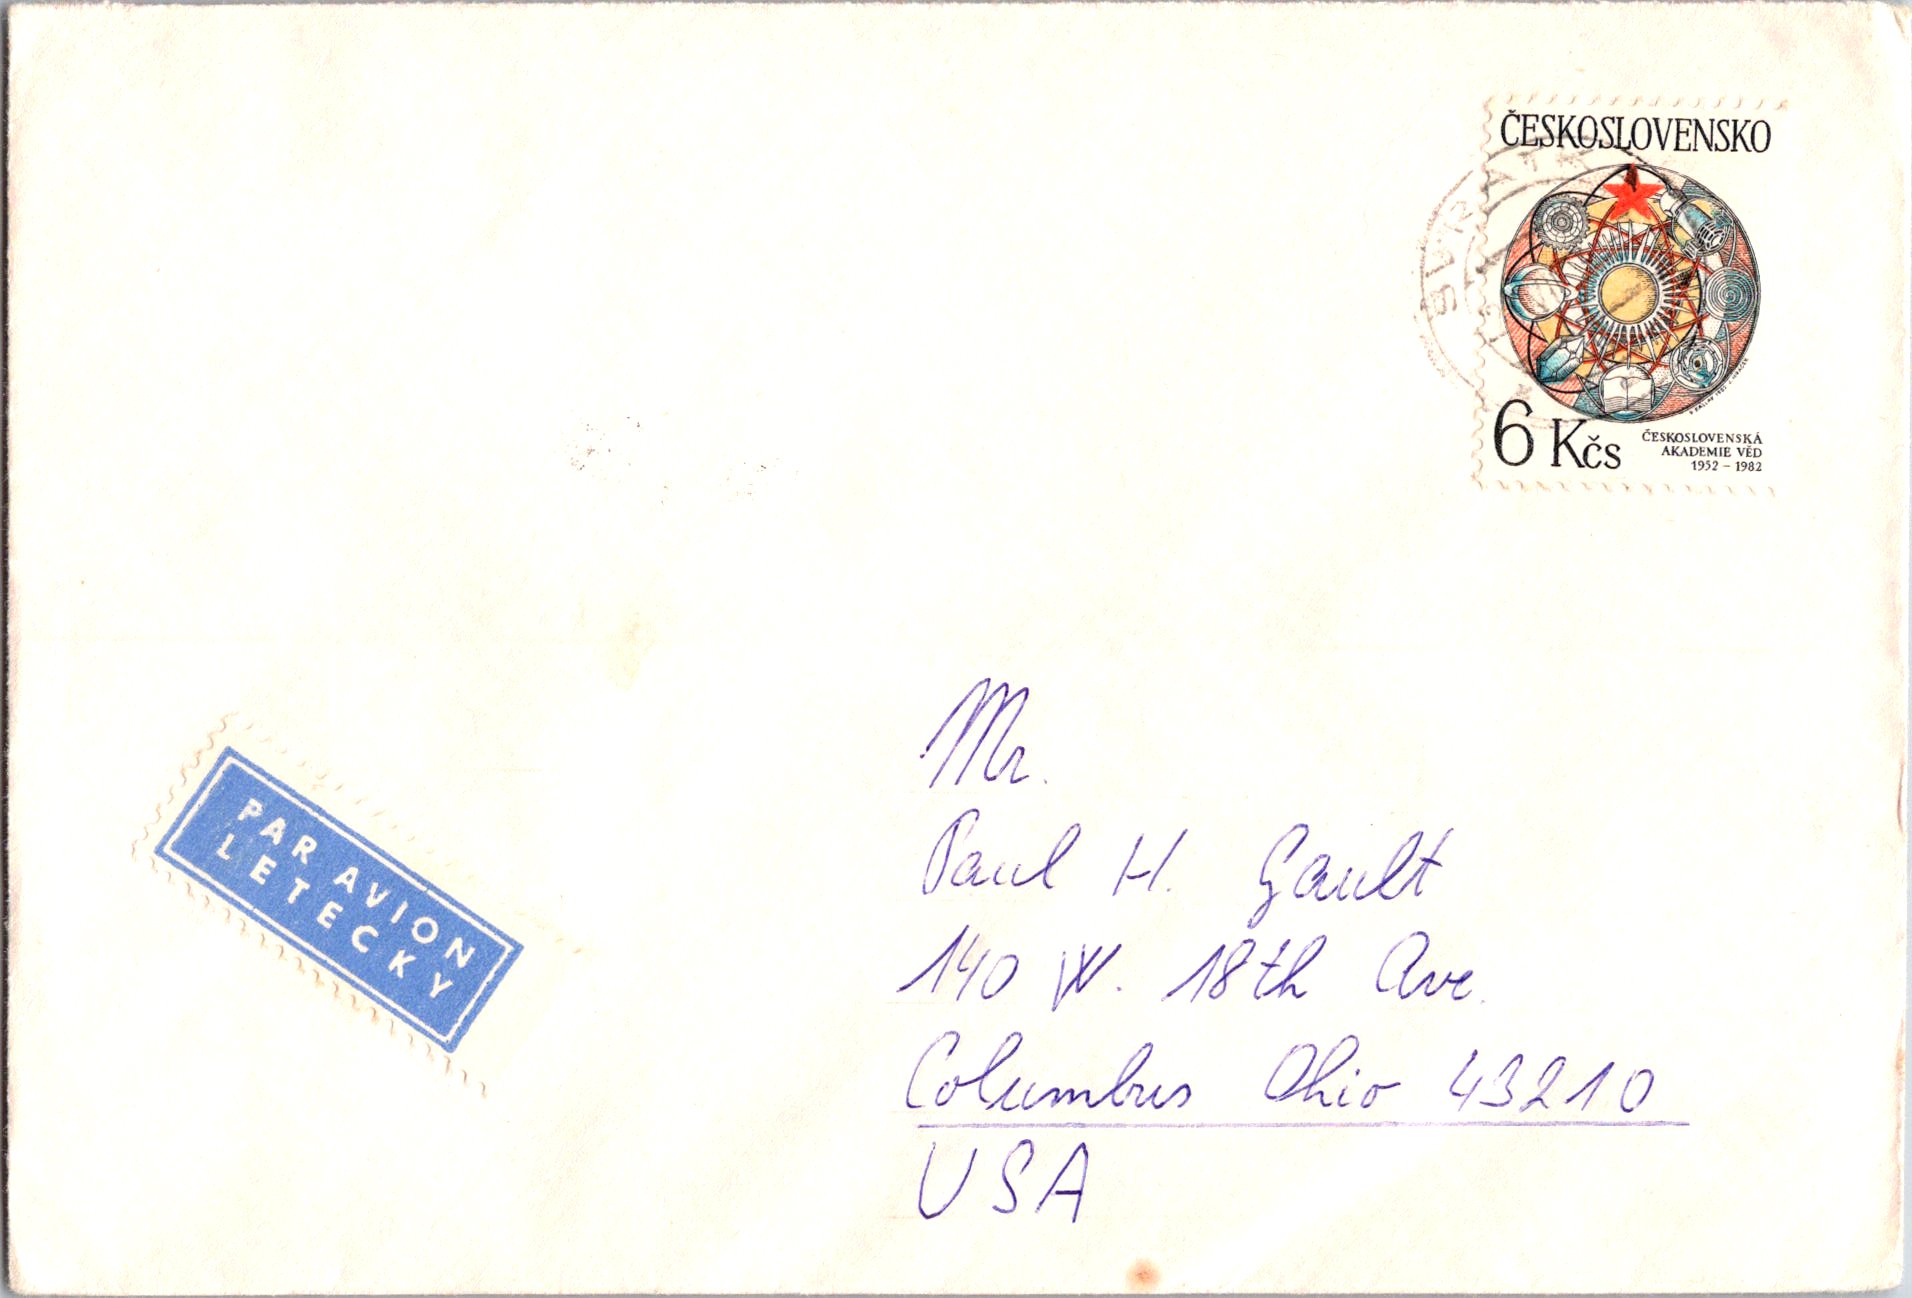 ČESKOSLOVENSKO
SVRATK
6 Kčs
ČESKOSLOVENSKÁ
AKADEMIE VĚD
1952 – 1982
PAR AVION
LETECKY
Mr.
Paul H. Gault
140 W. 18th Ave.
Columbus Ohio 43210
USA